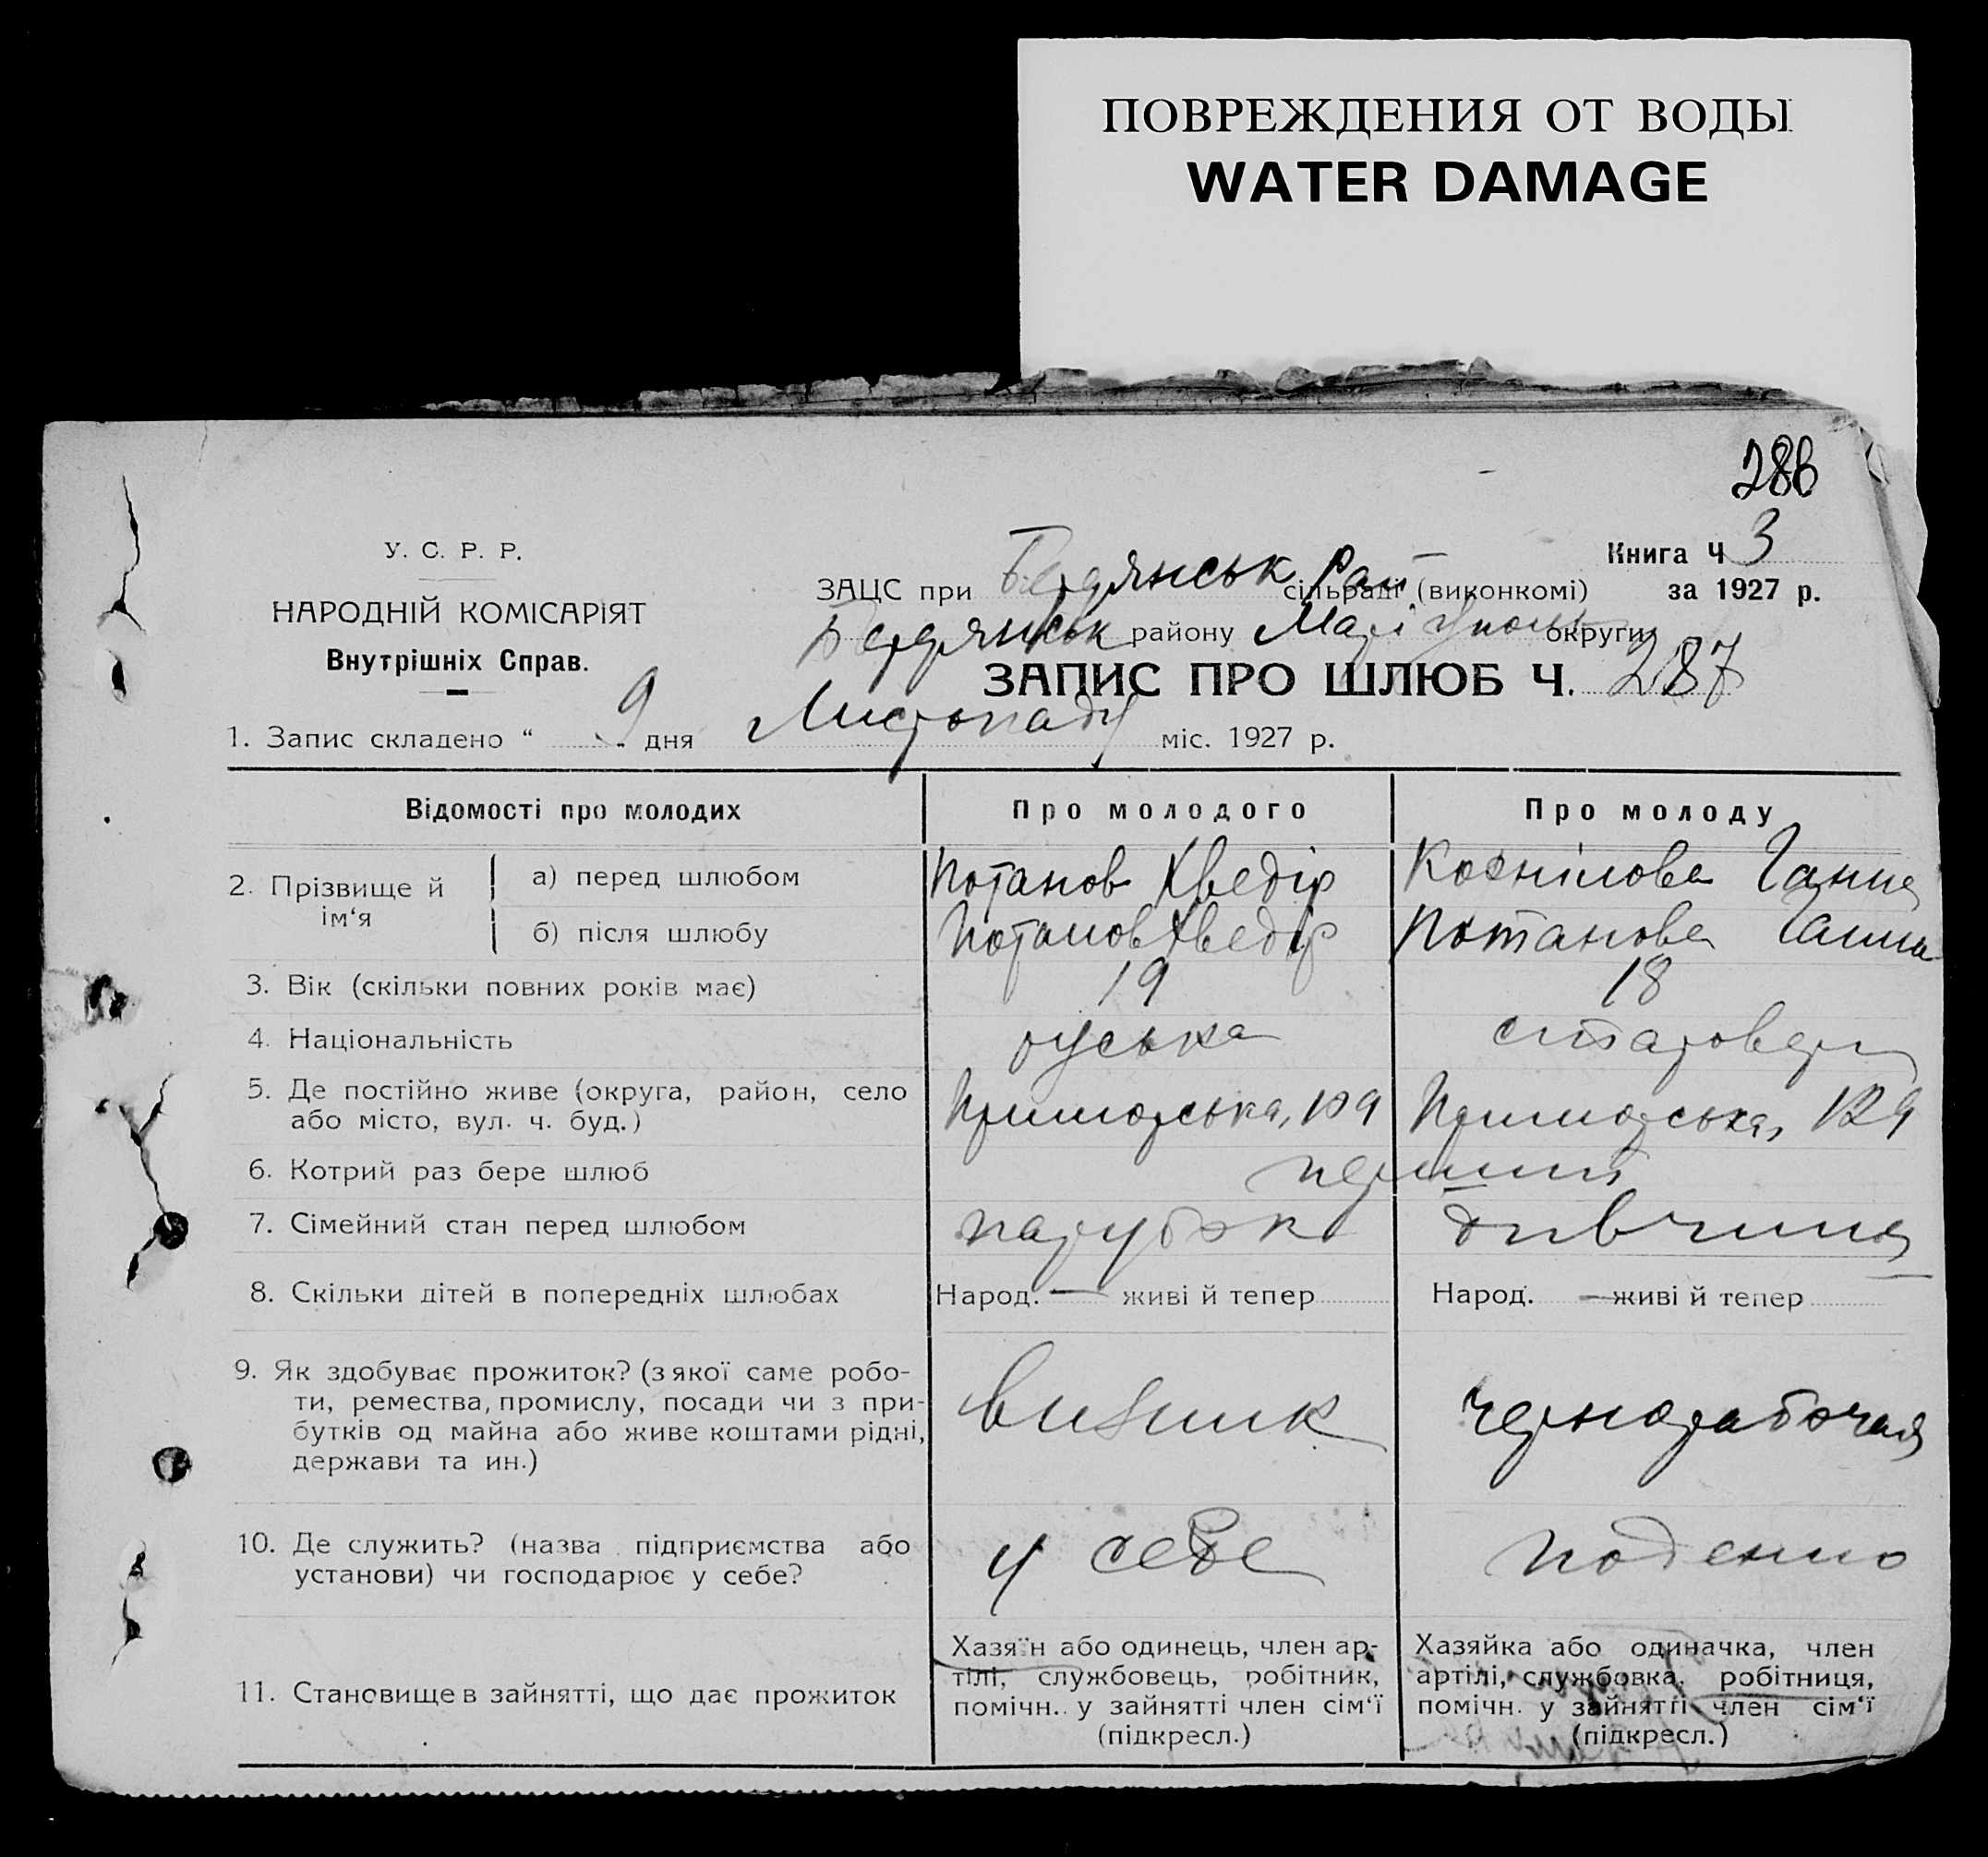 ПОВРЕЖДЕНИЯ ОТ ВОДЫ
WATER DAMAGE
286
У. С. Р. Р.
НАРОДНІЙ КОМІСАРІЯТ
Внутрішніх Справ.
Книга Ч 3
за 1927 р.
ЗАЦС при Бердянськ Рай сільраді (виконкомі)
Бердянськ району Маріуполь округи
ЗАПИС ПРО ШЛЮБ Ч. 287
1. Запис складено “ 9 дня Листопаду міс. 1927 р.
Відомості про молодих Про молодого Про молоду
2. Прізвище й ім‘я
а) перед шлюбом Потапов Хведір Корнілова Ганна
б) після шлюбу Потапов Хведір Потапова Ганна
3. Вік (скільки повних років має) 19 18
4. Національність руська старовери
5. Де постійно живе (округа, район, село
або місто, вул. ч. буд.) Приморська, 129 Приморська, 129
6. Котрий раз бере шлюб перший
7. Сімейний стан перед шлюбом парубок дивчина
8. Скільки дітей в попередніх шлюбах Народ. — живі й тепер Народ. — живі й тепер
9. Як здобуває прожиток? (з якої саме робо-
ти, ремества, промислу, посади чи з при-
бутків од майна або живе коштами рідні,
держави та ин.)
визник чернорабочая
10. Де служить? (назва підприємства або
установи) чи господарює у себе?
у себе поденно
11. Становище в зайнятті, що дає прожиток
Хазяїн або одинець, член ар-
тілі, службовець, робітник,
помічн. у зайнятті член сім‘ї
(підкресл.)
Хазяйка або одиначка, член
артілі, службовка, робітниця,
помічн. у зайнятті член сім‘ї
(підкресл.)